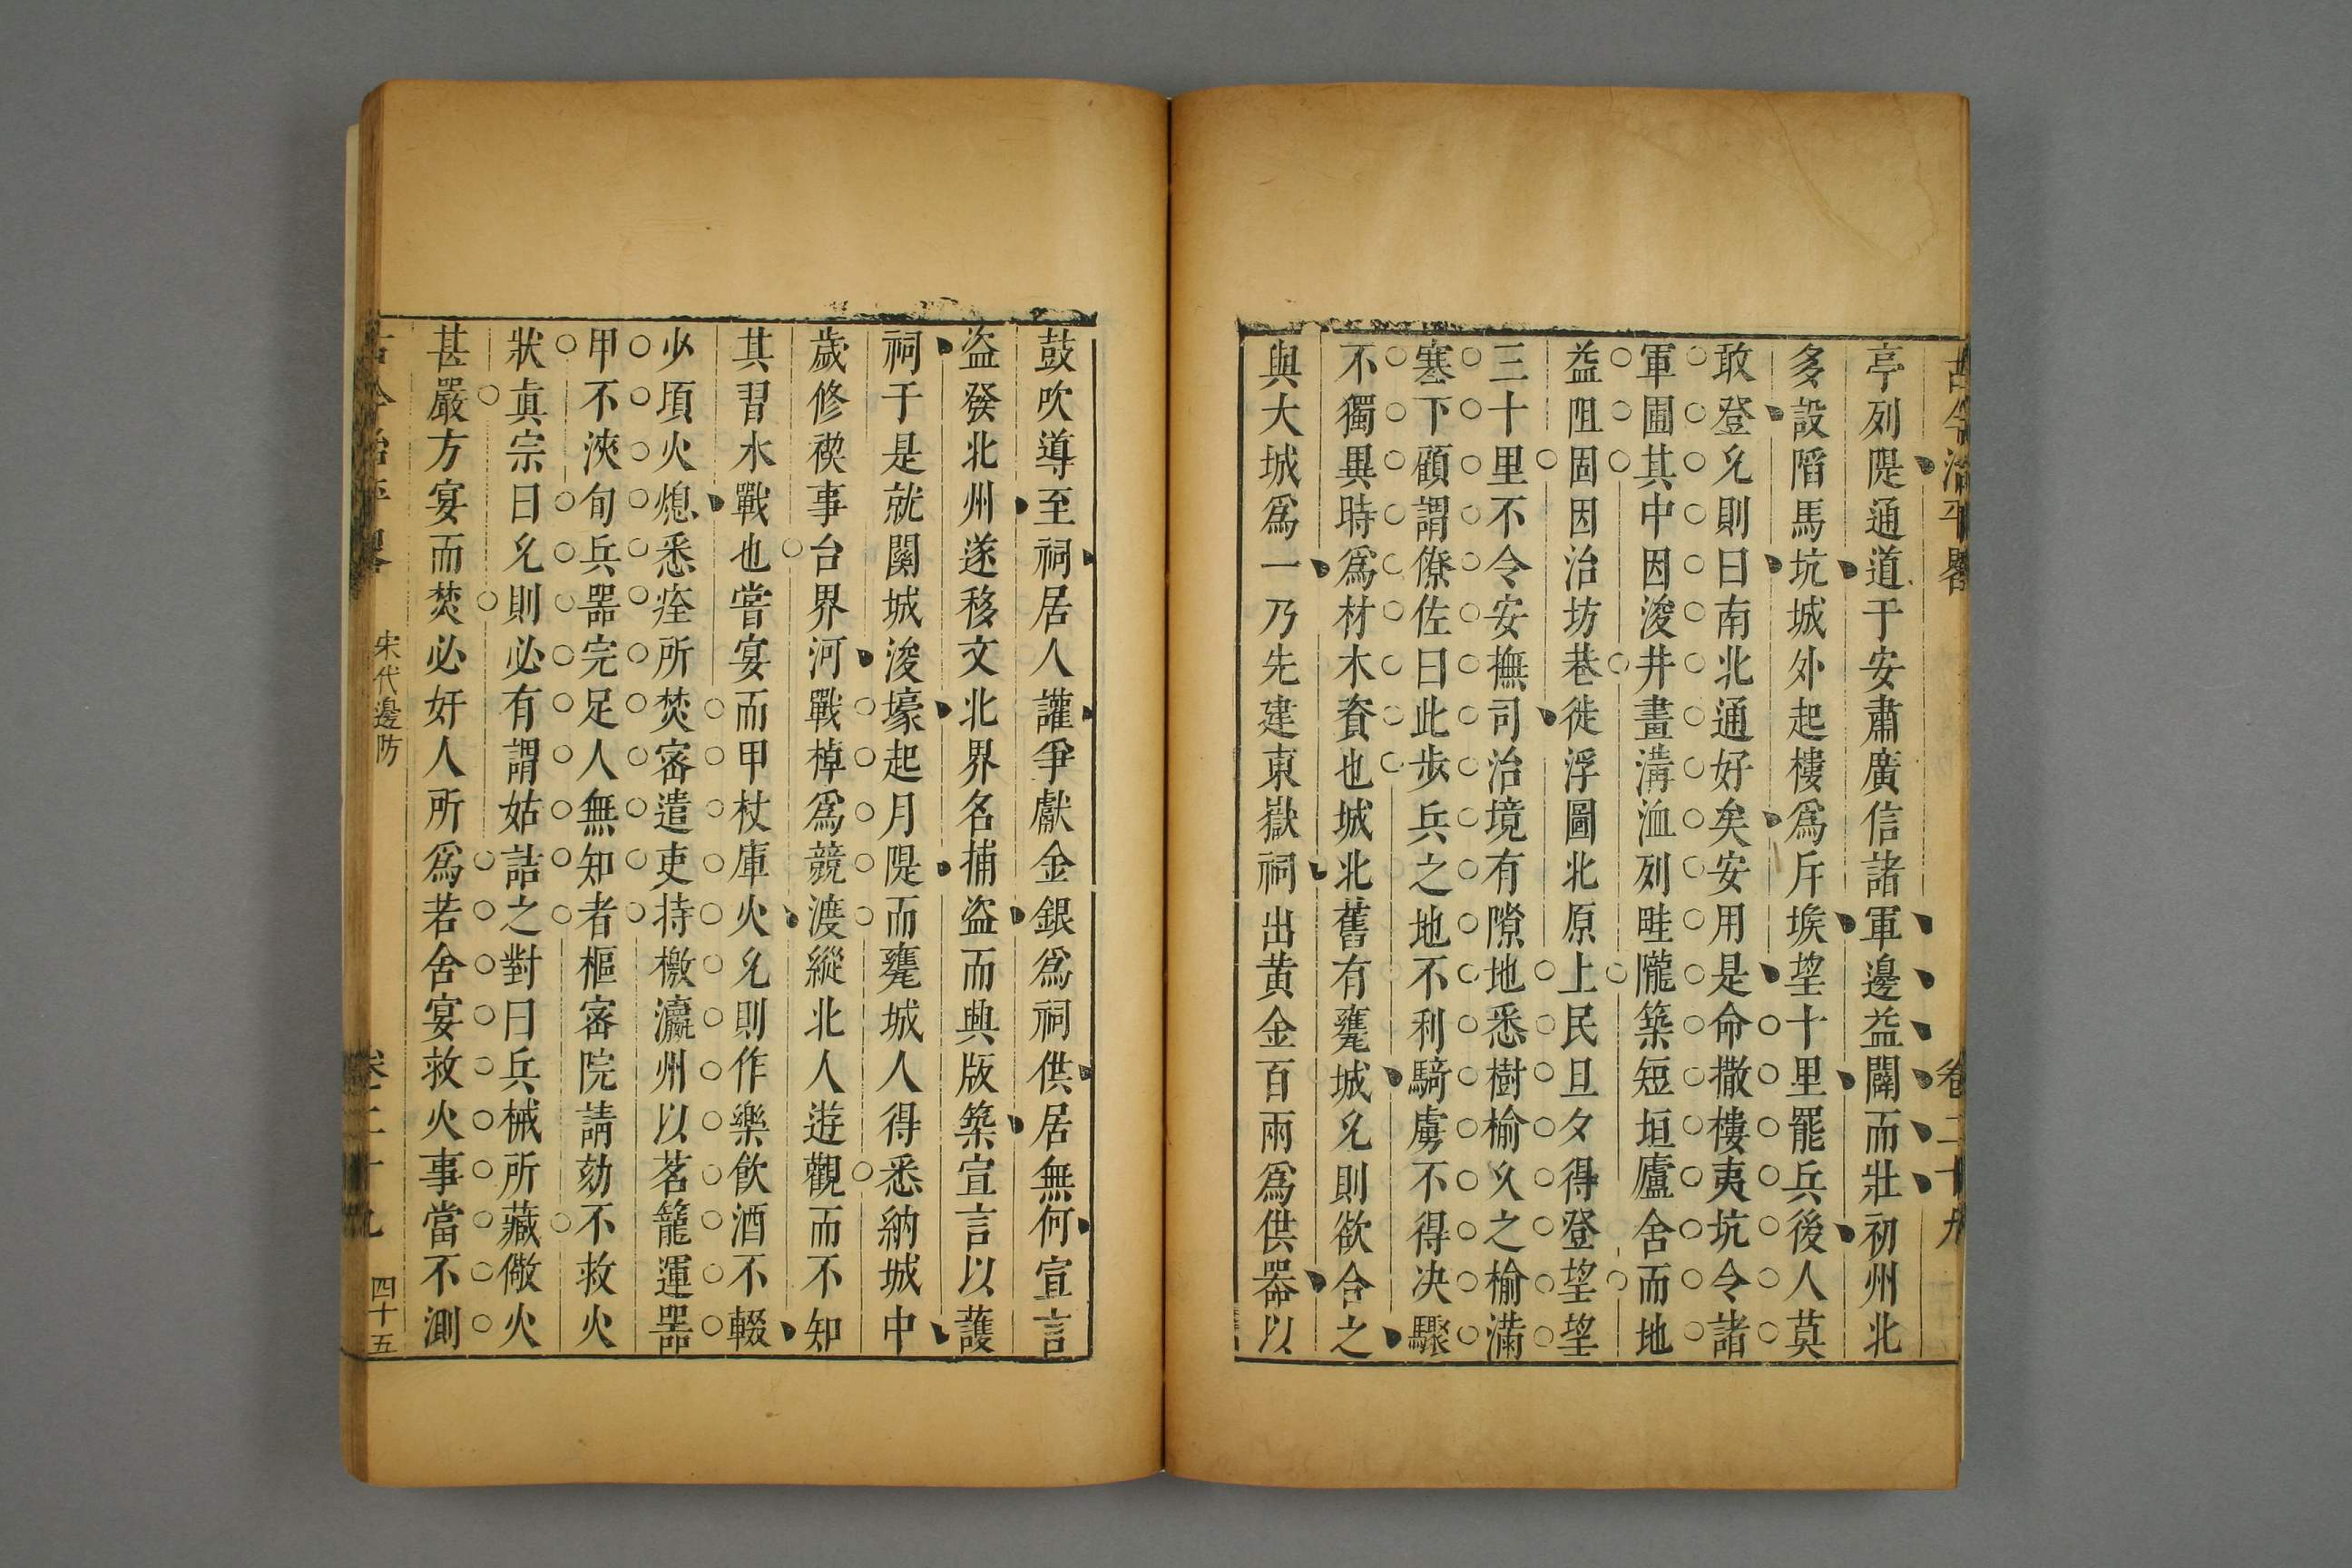 古今治平畧 卷二十九
亭列隄通道于安肅廣信諸軍邊益闢而壯初州北
多設䧟馬坑城外起樓爲斥堠望十里罷兵後人莫
敢登允則曰南北通好矣安用是命撤樓夷坑令諸
軍圃其中因浚井畫溝洫列畦隴築短垣廬舍而地
益阻固因治坊巷徙浮圖北原上民旦夕得登望望
三十里不令安撫司治境有隙地悉樹榆久之榆滿
塞下顧謂僚佐曰此步兵之地不利騎虜不得決驟
不獨異時爲材木資也城北舊有甕城允則欲合之
與大城爲一乃先建東嶽祠出黃金百兩爲供器以
鼓吹導至祠居人讙爭獻金銀爲祠供居無何宣言
盜發北州遂移文北界名捕盜而興版築宣言以護
祠于是就關城浚壕起月隄而甕城人得悉納城中
歲修禊事台界河戰棹爲競渡縱北人遊觀而不知
其習水戰也嘗宴而甲杖庫火允則作樂飲酒不輟
少頃火熄悉瘞所焚密遣吏持檄瀛州以茗籠運器
甲不浹旬兵器完足人無知者樞密院請劾不救火
狀真宗曰允則必有謂姑詰之對曰兵械所藏儆火
甚嚴方宴而焚必奸人所爲若舍宴救火事當不測
古今治平畧 宋代邊防 卷二十九 四十五